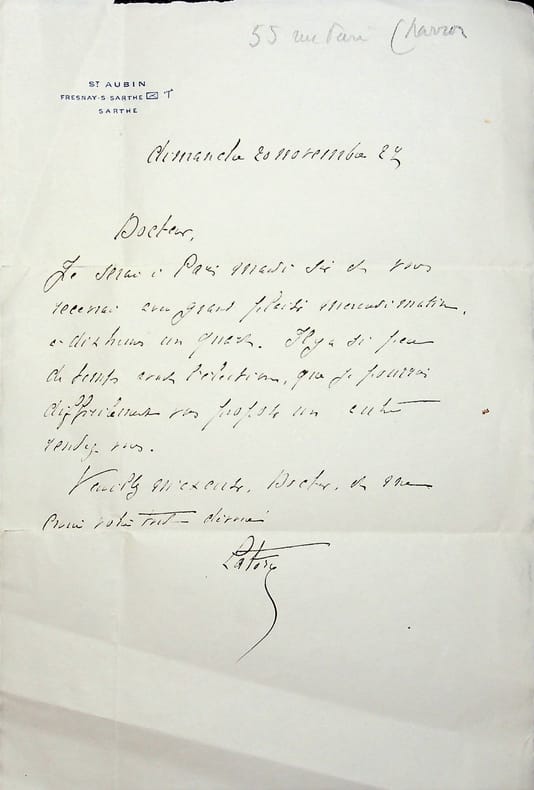 55 rue Pierre Charron
ST AUBIN
FRESNAY-S-SARTHE T
SARTHE
dimanche 20 novembre 27
Docteur,
Je serai à Paris mardi soir et vous
recevrai avec grand plaisir mercredi matin,
à dix heures un quart. Il y a si peu
de temps avant l'élection, que je pourrai
difficilement vous proposer un autre
rendez vous.
Veuillez m'excuser, Docteur, et me
croire votre tout dévoué